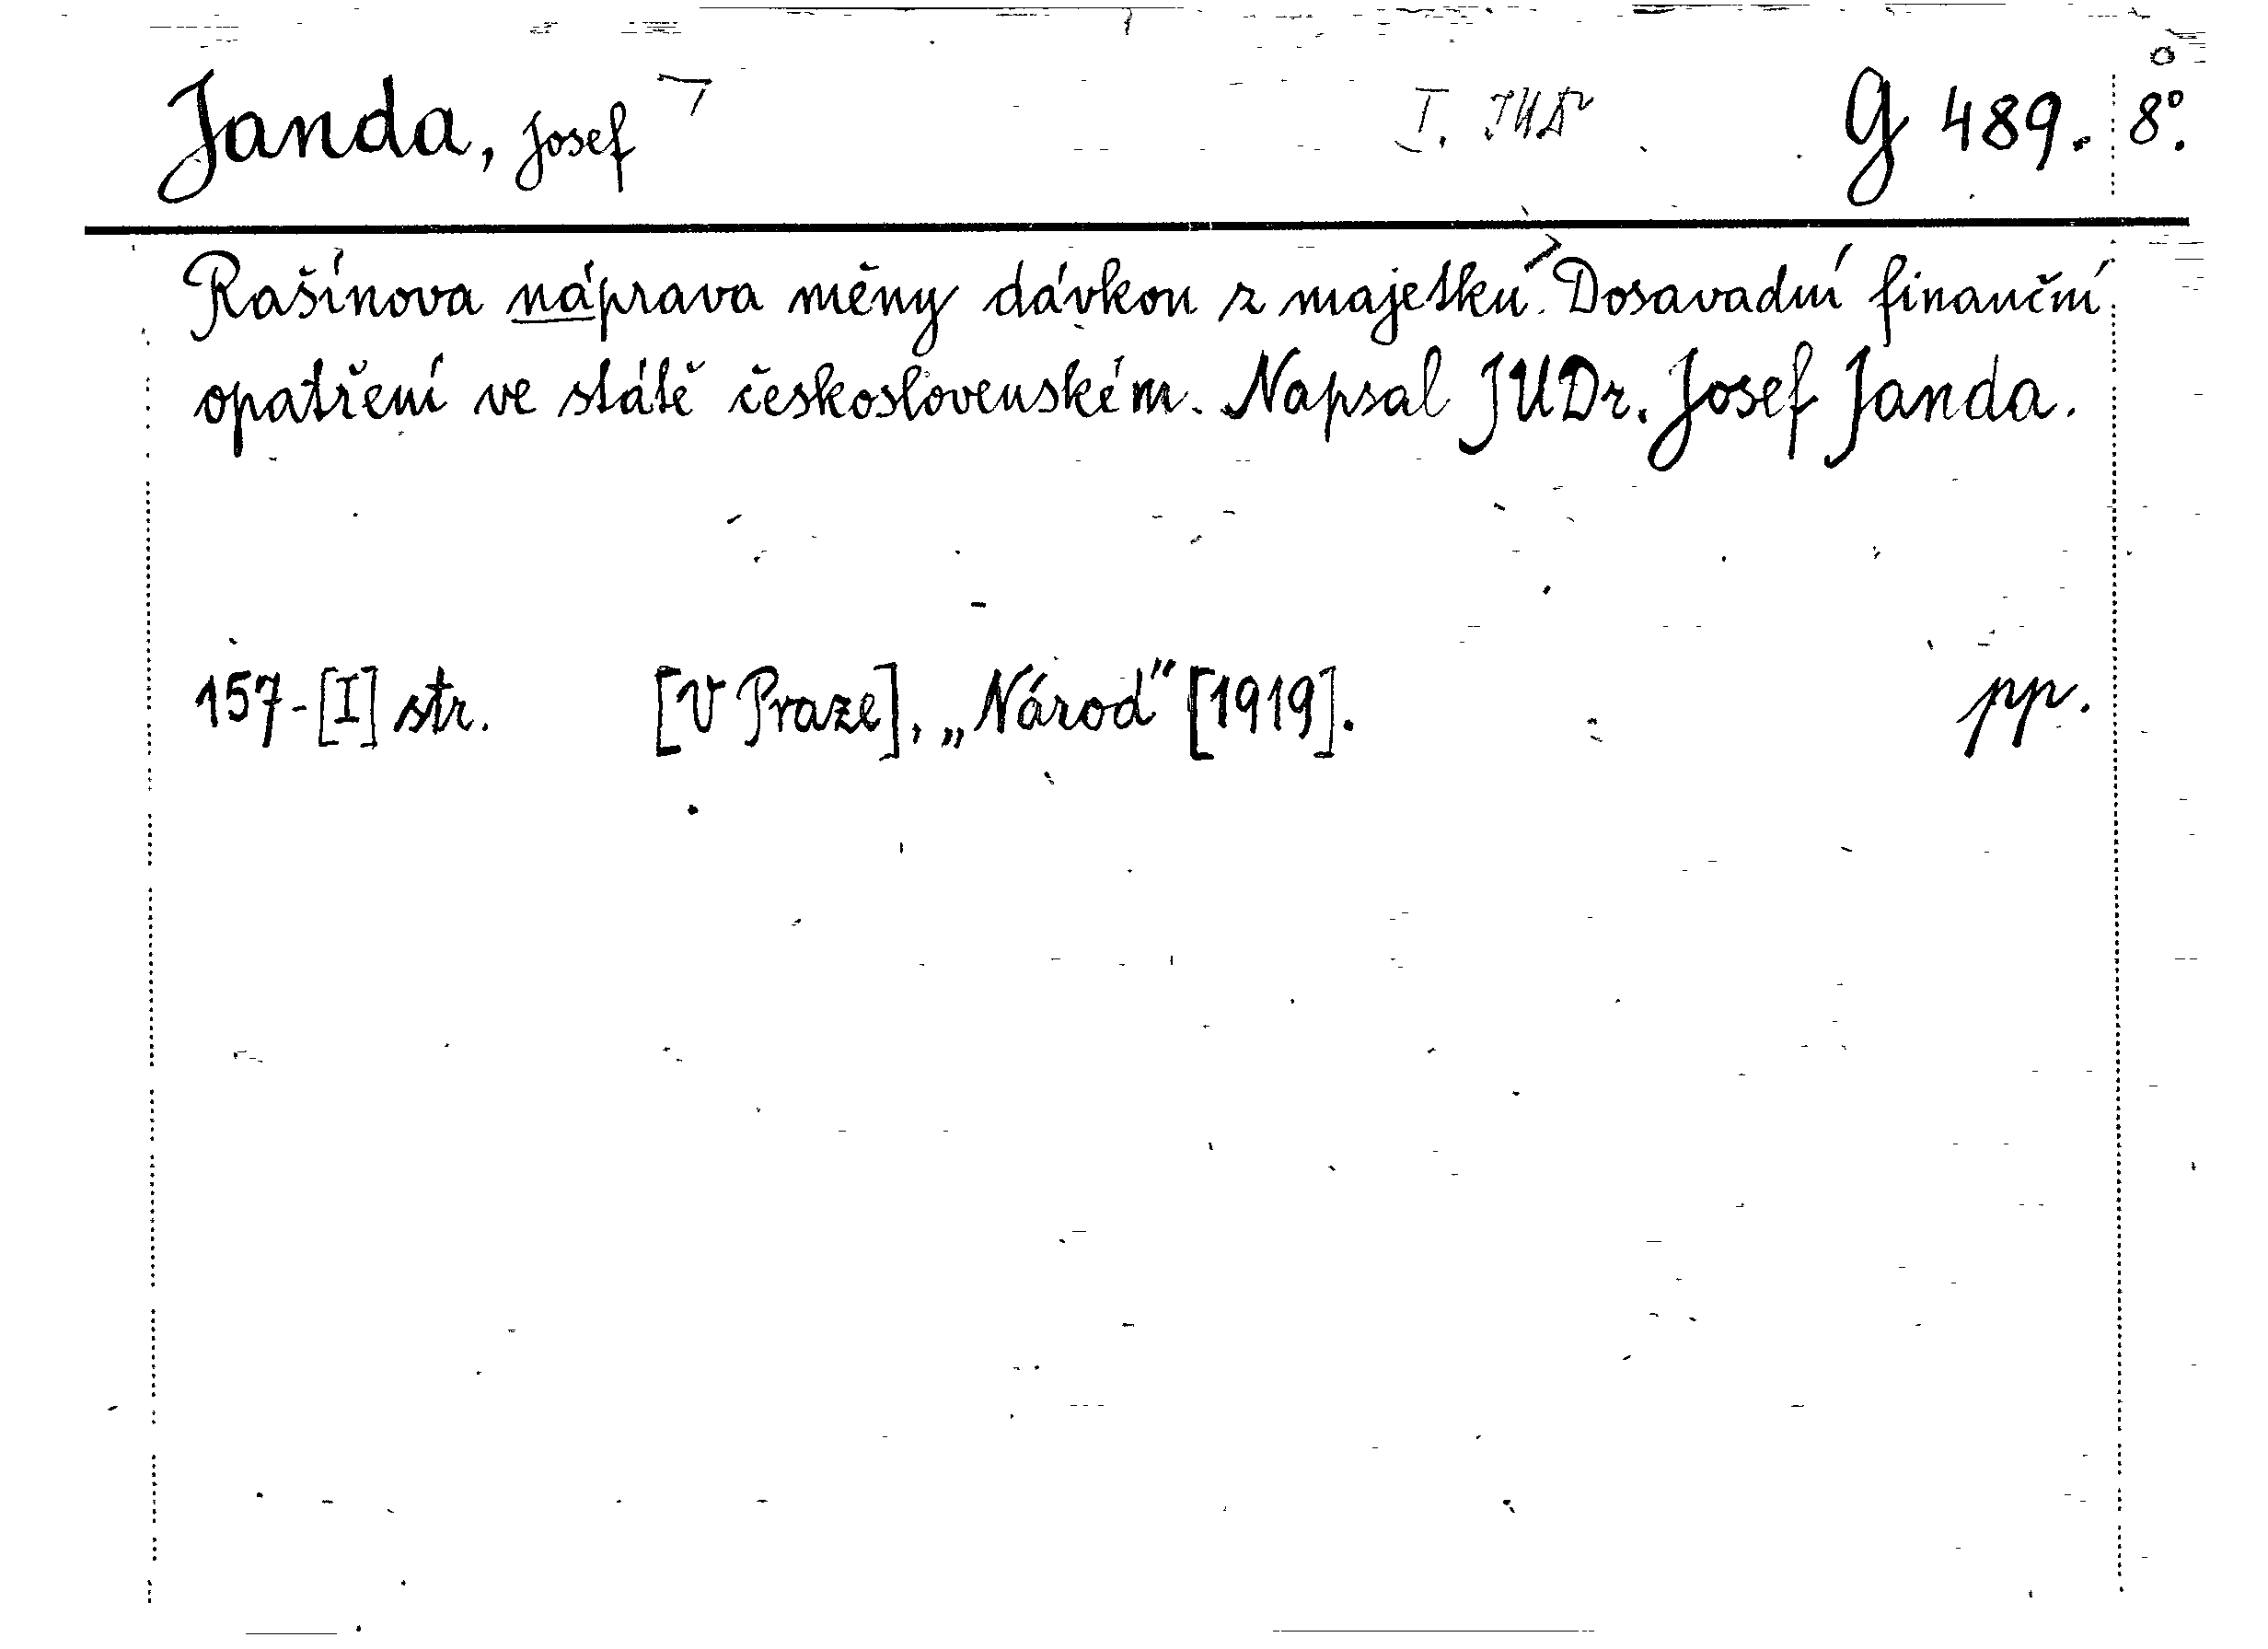 Janda, Josef I. JUDr G 489. 8°.
Rašínova náprava měny dávkou z majetku. Dosavadní finanční
opatření ve státě československém. Napsal JUDr. Josef Janda.
157-[I] str. [V Praze], „Národ" [1919]. pp.